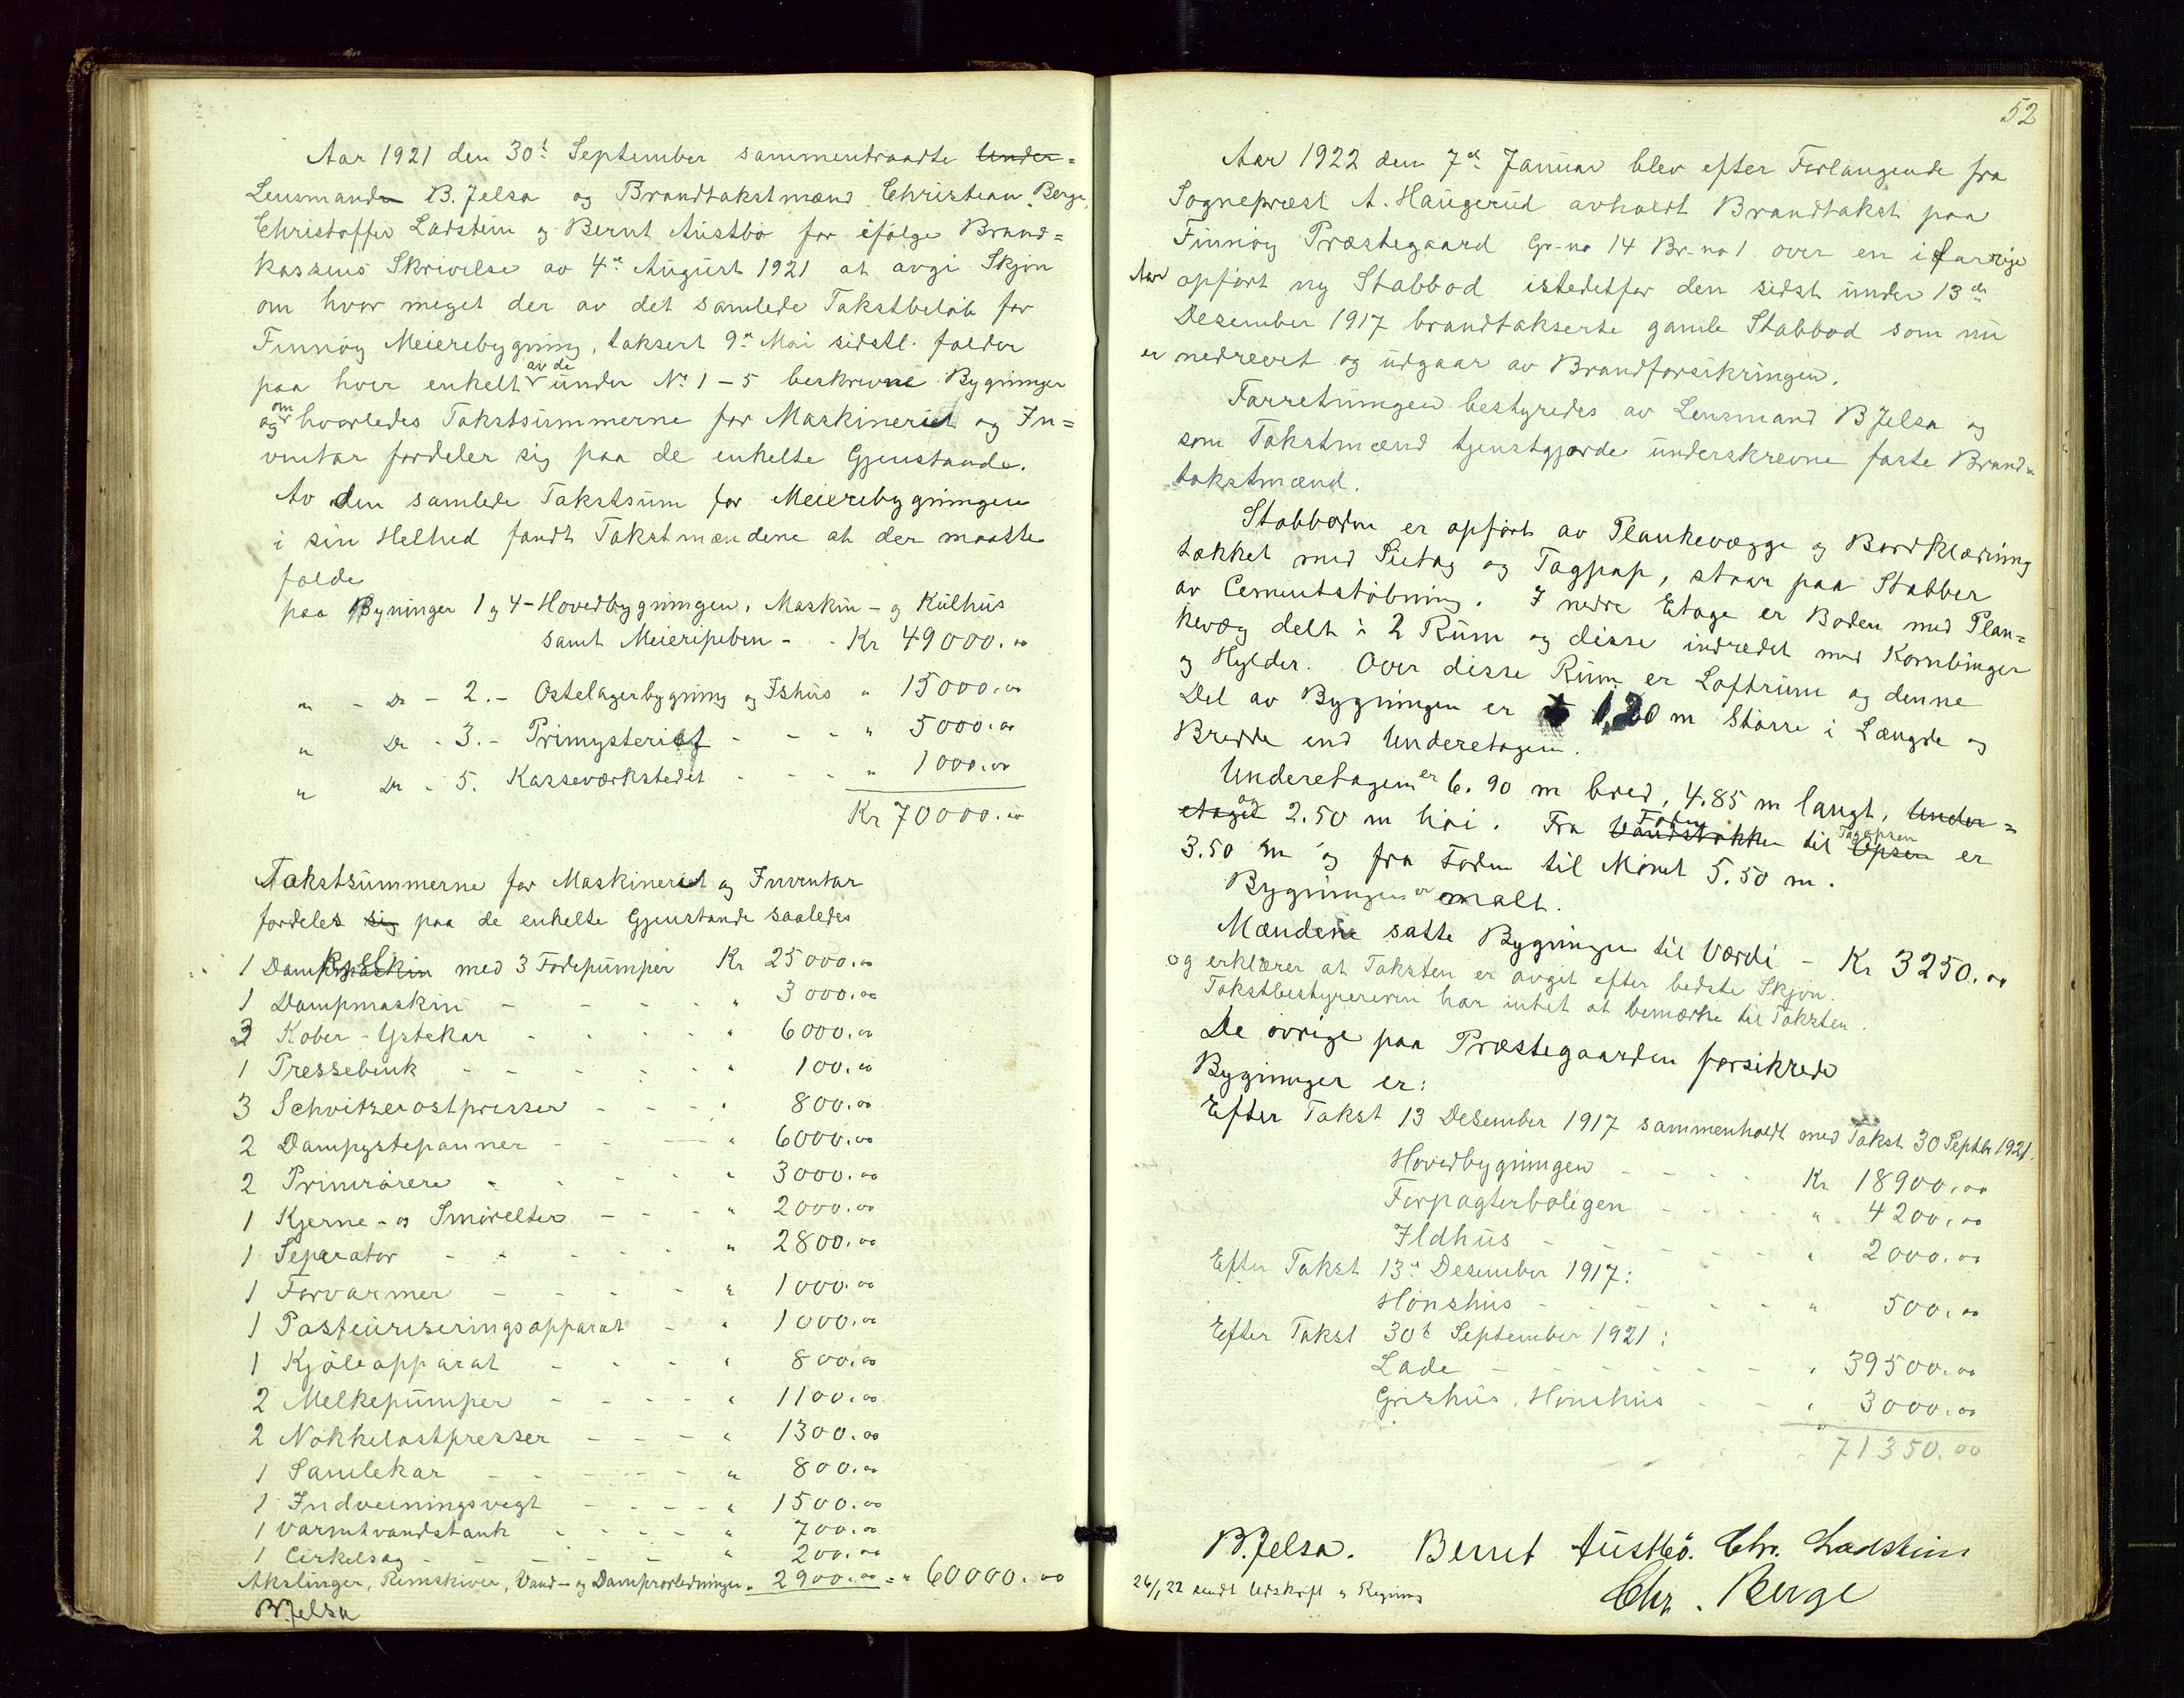 Aar 1921 den 30t September sammentraadte Under-
Lensmanden B. Jelsa og Brandtakstmænd Christian Berge,
Christoffer Ladstein og Bernt Austbö for ifölge Brand=
kassens Skrivelse av 4de August 1921 at avgi Skjön
om hvor meget der av det samlede Takstbelöb for
Finnöy Meieribygning, taksert 9de Mai sidstl. falder
paa hver enkelt av de under No 1-5 beskrevne Bygninger
og om hvorledes Takstsummerne for Maskineriet og In=
ventar fordeler sig paa de enkelte Gjenstande.
Av den samlede Takstsum for Meieribygningen
i sin Helhed fandt Takstmændene at der maatte
falde
paa Byninger 1 og 4 - Hovedbygningen, Maskin- og Kulhus
samt Meieripeben - - Kr 49000.00
" - Do - 2. - Ostelagerbygning og Ishus " 15000.00
" Do - 3. - Primysteriet - - - " 5000.00
" Do - 5. Kasseværkstedet - - - " 1000.00
Kr 70000.00
Takstsummerne for Maskineriet og Inventar
fordeles sig paa de enkelte Gjenstande saaledes
1 Dampkjel med 3 Födepumper Kr 25000.00
1 Dampmaskin - - - - " 3000.00
3 Kober-Ystekar - - - - " 6000.00
1 Pressebenk - - - - - " 100.00
3 Schvitzerostpresser - - - " 800.00
2 Dampystepanner - - - " 6000.00
2 Primrörere - - - - " 3000.00
1 Kjerne- og Smörelter - - - " 2000.00
1 Seperator - - - - - " 2800.00
1 Forvarmer - - - - " 1000.00
1 Pasteuriseringsapparat - - " 1000.00
1 Kjöleapparat - - - - " 800.00
2 Melkepumper - - - - " 1100.00
2 Nökkelostpresser - - - " 1300.00
1 Samlekar - - - - - " 800.00
1 Indveiningsvegt - - - - " 1500.00
1 Varmtvandstank - - - - " 700.00
1 Cirkelsag - - - - - " 200.00
Akslinger, Remskiver, Vand- og Dampvorledninger " 2900.00 = " 60000.00
B Jelsa
52
Aar 1922 den 7de Januar blev efter Forlangende fra
Sogneprest A. Haugerud avholdt Brandtakst paa
Finnöy Præstegaard Gr-no 14 Br-no 1 over en i forrige
Aar opfört ny Stabbod istedetfor den sidst under 13de
Desember 1917 brandtakserte gamle Stabbod som nu
er nedrevet og udgaar av Brandforsikringen.
Forretningen bestyredes av Lensmand B Jelsa og
som Takstmænd tjenstgjorde underskrevne faste Brand=
takstmænd.
Stabboden er opfört av Plankevægge og Bordklædning
tækket med Sutag og Tagpap, staar paa Stabber
av Cementstöbning. I nedre Etage er Boden med Plan=
kevæg delt i 2 Rum og disse indredet med Kornbinger
og Hylder. Over disse Rum er Loftrum og denne
Del av Bygningen er 1,20 m Större i Længde og
Bredde end Underetagen.
Underetagen er 6.90 m bred, 4.85 m langt, Under=
etaget og 2.50 m höi. Fra Vandstokken Foden til Opsen Tagopsen er
3.50 m og fra Foden til Mönet 5.50 m.
Bygningen er malt.
Mændene satte Bygningen til Værdi - Kr 3250.00
og erklærer at Taksten er avgit efter bedste Skjön.
Takstbestyreren har intet at bemærke til Taksten.
De övrige paa Præstegaarden forsikrede
Bygninger er:
Efter Takst 13 Desember 1917 sammenholdt med Takst 30 Septbr 1921.
Hovedbygningen - - - - Kr 18900.00
Forpagterboligen - - - - " 4200.00
Ildhus - - - - - - " 2000.00
Efter Takst 13de Desember 1917:
Hönshus - - - - - " 500.00
Efter Takst 30t September 1921:
Lade - - - - - - " 39500.00
Grishus, Hönshus - - " 3000.00
71350.00
B. Jelsa. Bernt Austbö. Chr. Ladstein
Chr. Berge
26/1 22 sendt Udskrift